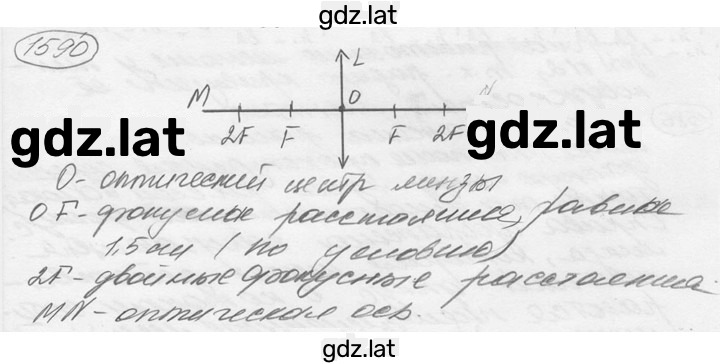 gdz.lat
1590
L
M O N
2F F F 2F
gdz.lat gdz.lat
O - оптический центр линзы
OF - фокусные расстояния, равные
1,5 см (по условию)
2F - двойные фокусные расстояния.
MN - оптическая ось.
gdz.lat